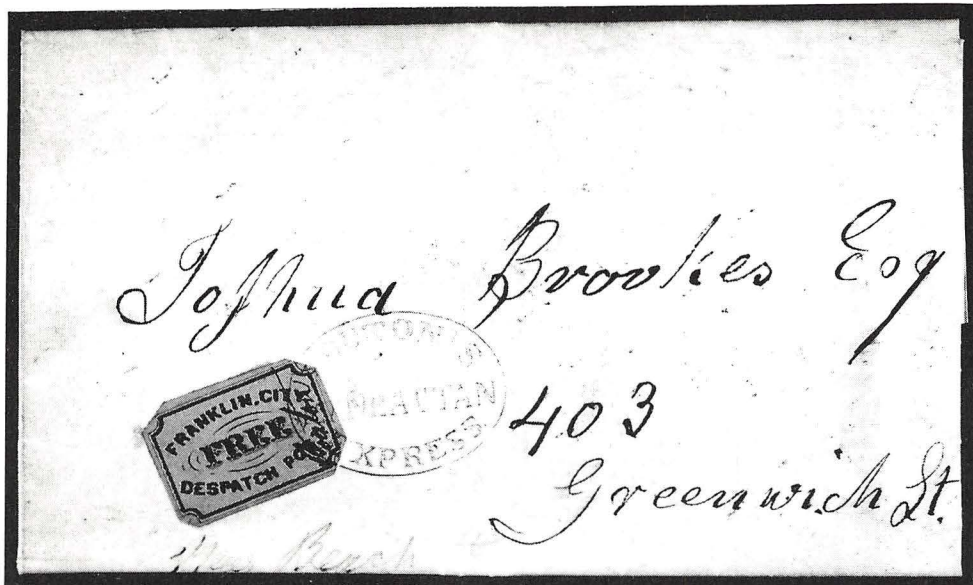 Joshua Brookes Esq
403
Greenwich St.
FRANKLIN. CITY
FREE
DESPATCH PO
XPRESS